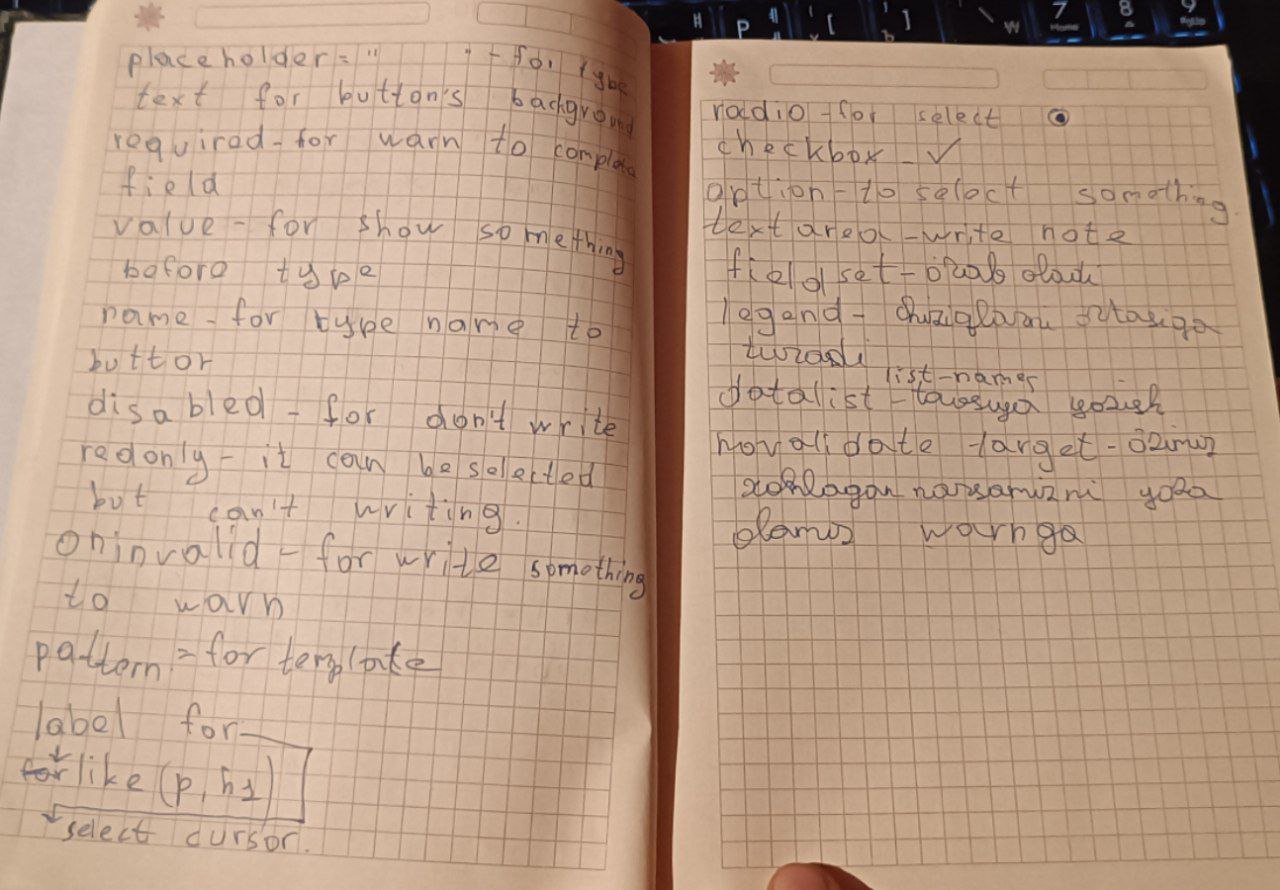 placeholder = " " - for type
text for button's background
required - for warn to complete
field
value - for show something
before type
name - for type name to
button
disabled - for don't write
redonly - it can be selected
but can't writing.
oninvalid - for write something
to warn
pattern = for template
label for
for like (p, h1)
select cursor.
radio - for select
checkbox - ✓
option - to select something.
text area - write note
field set - o'rab oladi
legend - chiziqlarni o'rtasiga
turadi
list-names
datalist - tavsiya yozish
novalidate target - o'zimiz
xohlagan narsamizni yoza
olamiz warnga
H P [ ] W 7 8 9
Home PgUp